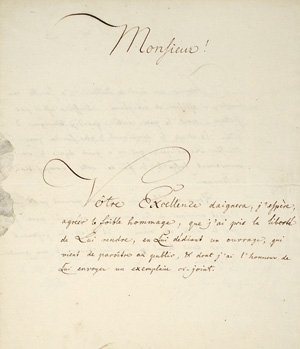 Monsieur!
Vôtre Excellence daignera, j'espère,
agréer le foible hommage, que j'ai pris la liberté
de Lui rendre, en Lui dédiant un ouvrage, qui
vient de paroître au public, & dont j'ai l'honneur de
Lui envoyer un exemplaire ci-joint.